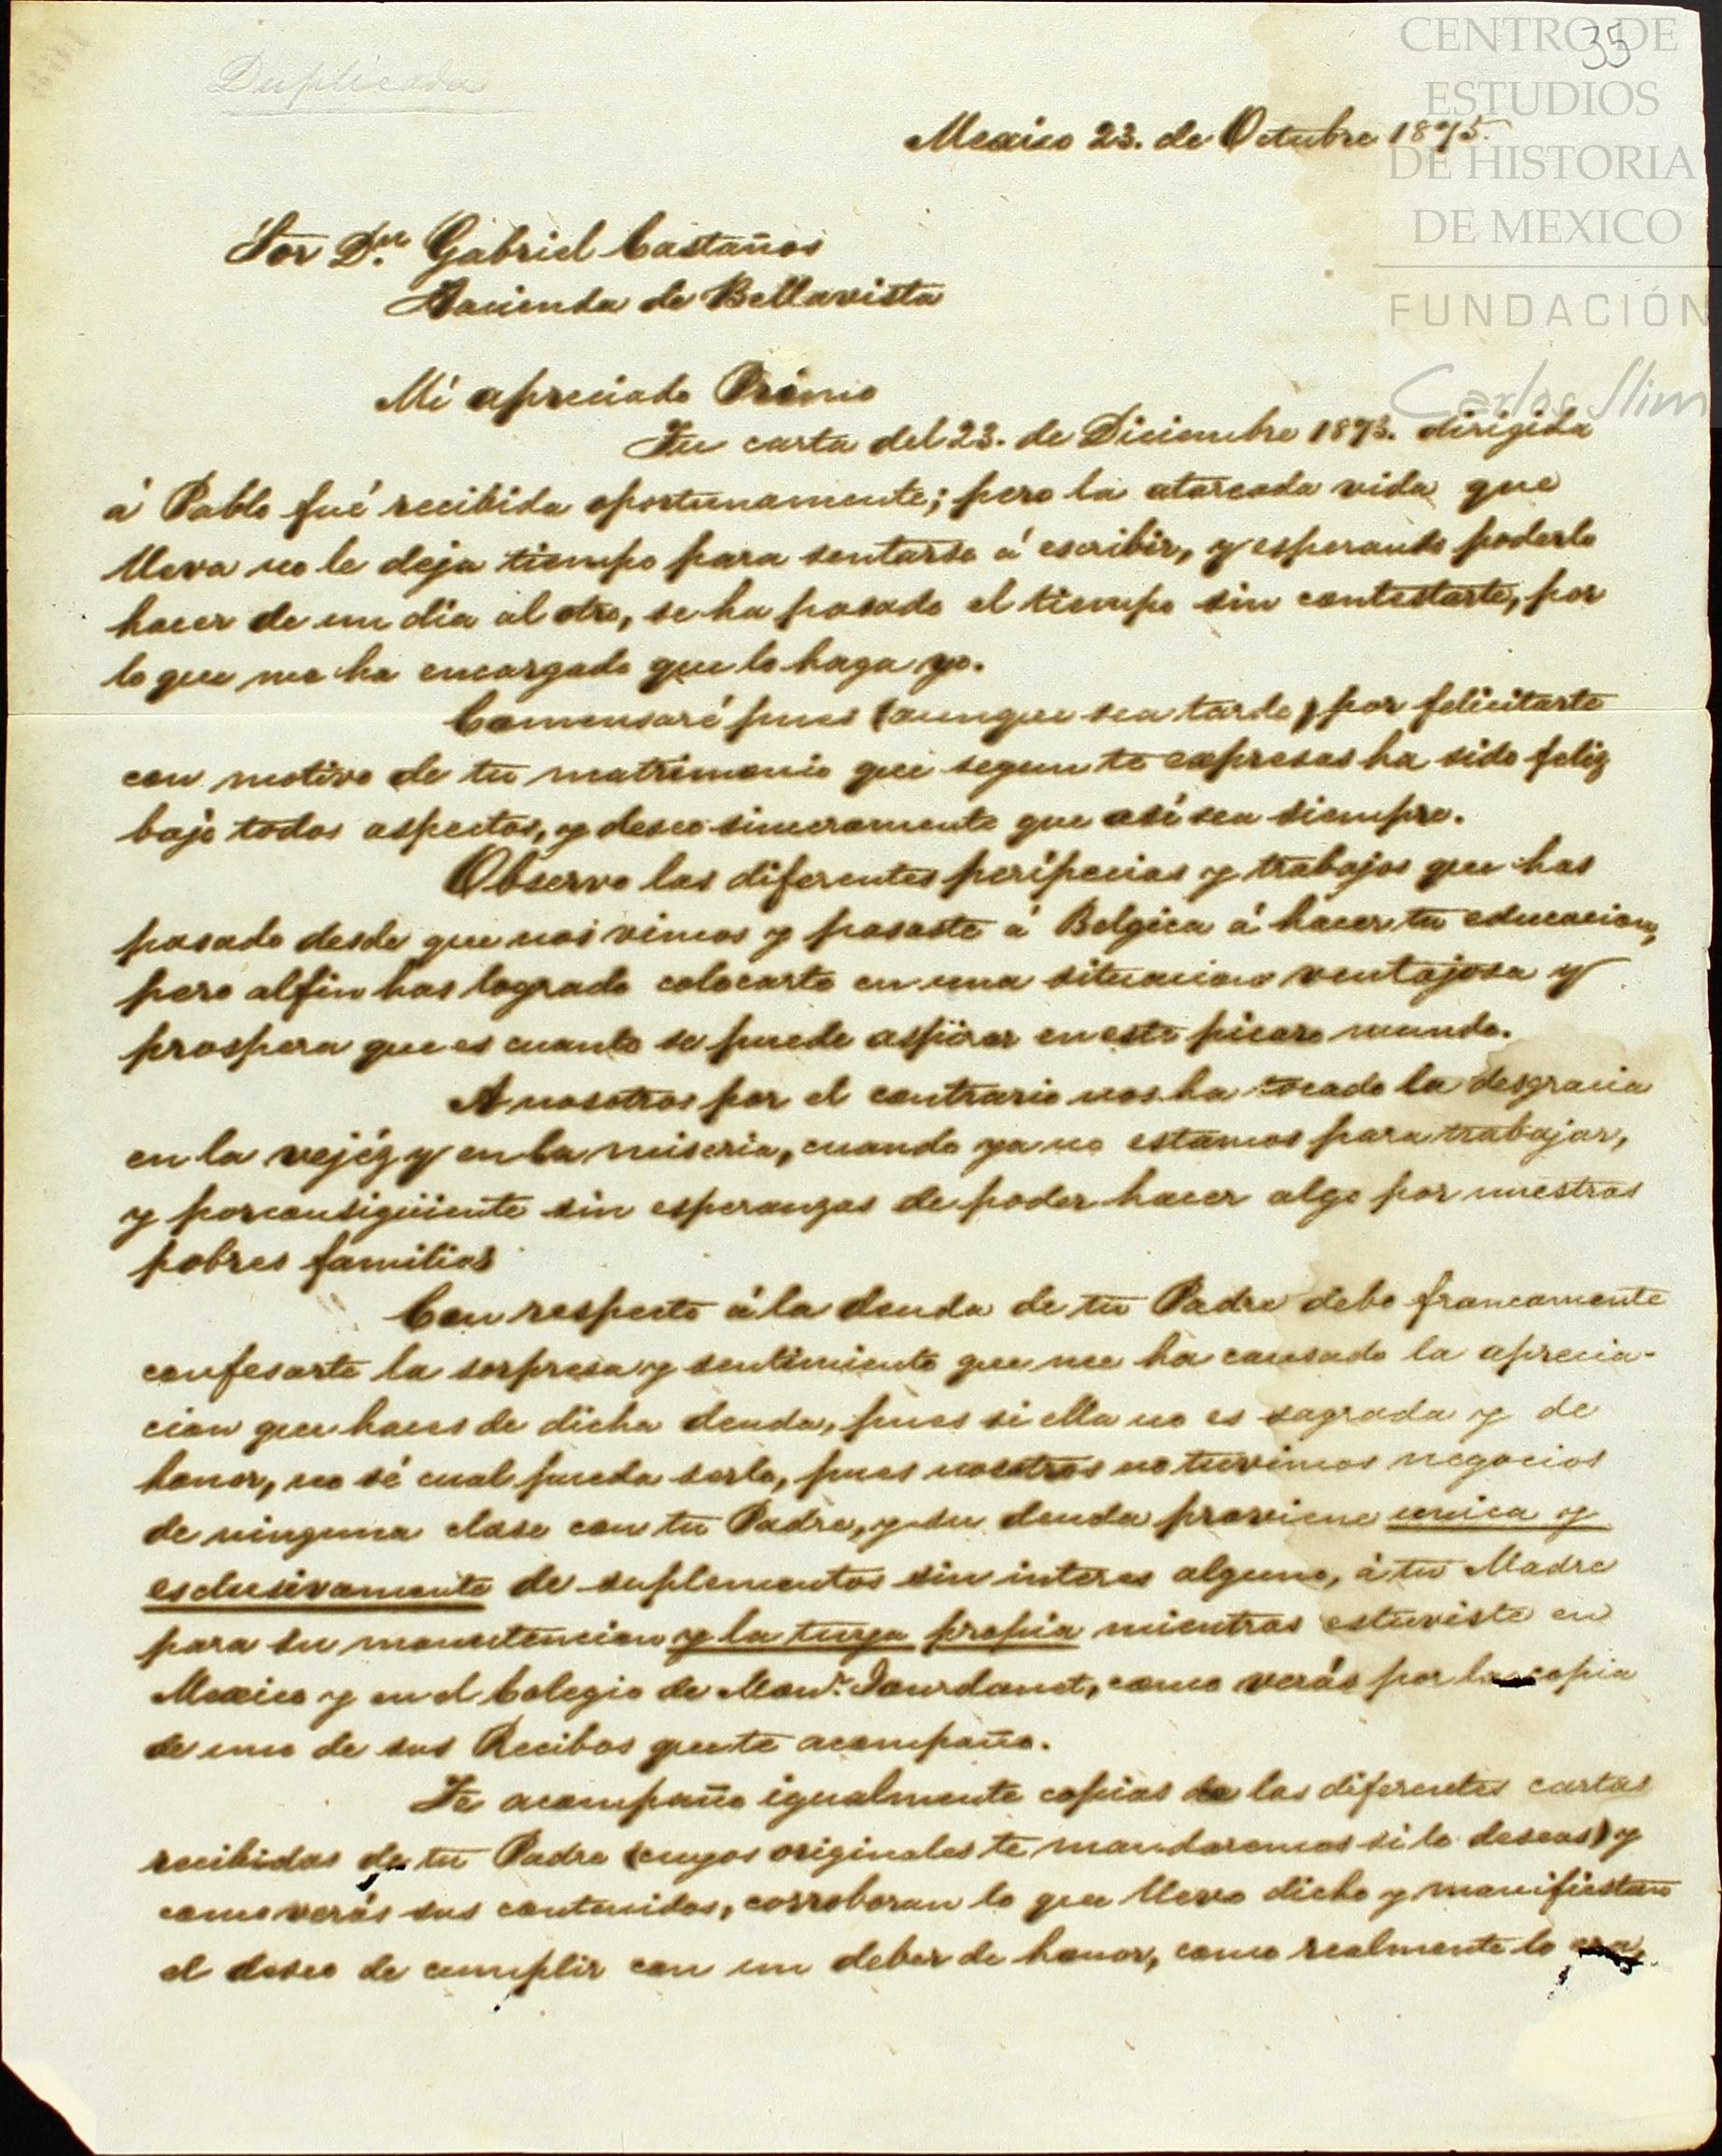 Duplicada
35
CENTRO DE
ESTUDIOS
DE HISTORIA
DE MEXICO
FUNDACIÓN
Carlos Slim
Mexico 23. de Octubre 1875.
Sor Dn. Gabriel Castaños
Hacienda de Bellavista
Mi apreciado Primo
Tu carta del 23. de Diciembre 1873. dirigida
á Pablo fué recibida oportunamente; pero la atareada vida que
lleva no le deja tiempo para sentarse á escribir, y esperando poderlo
hacer de un dia al otro, se ha pasado el tiempo sin contestarte, por
lo que me ha encargado que lo haga yo.
Comensaré pues (aunque sea tarde) por felicitarte
con motivo de tu matrimonio que segun te expresas ha sido feliz
bajo todos aspectos, y deseo sinceramente que así sea siempre.
Observo las diferentes peripecias y trabajos que has
pasado desde que nos vimos y pasaste á Belgica á hacer tu educacion,
pero al fin has logrado colocarte en una situacion ventajosa y
prospera que es cuanto se puede aspirar en este picaro mundo.
A nosotros por el contrario nos ha tocado la desgracia
en la vejéz y en la miseria, cuando ya no estamos para trabajar,
y porconsigüiente sin esperanzas de poder hacer algo por nuestras
pobres familias
Con respecto á la deuda de tu Padre debo francamente
confesarte la sorpresa y sentimiento que me ha causado la aprecia-
cion que haces de dicha deuda, pues si ella no es sagrada y de
honor, no sé cual pueda serlo, pues nosotros no tuvimos negocios
de ninguna clase con tu Padre, y su deuda proviene unica y
esclusivamente de suplementos sin interes alguno, á tu Madre
para su manutencion y la tuya propia mientras estuviste en
Mexico y en el Colegio de Monr. Jourdanet, como verás por la copia
de uno de sus Recibos que te acompaño.
Te acompaño igualmente copias de las diferentes cartas
recibidas de tu Padre (cuyos originales te mandaremos si lo deseas) y
como verás sus contenidos, corroboran lo que llevo dicho y manifiestan
el deseo de cumplir con un deber de honor, como realmente lo era.